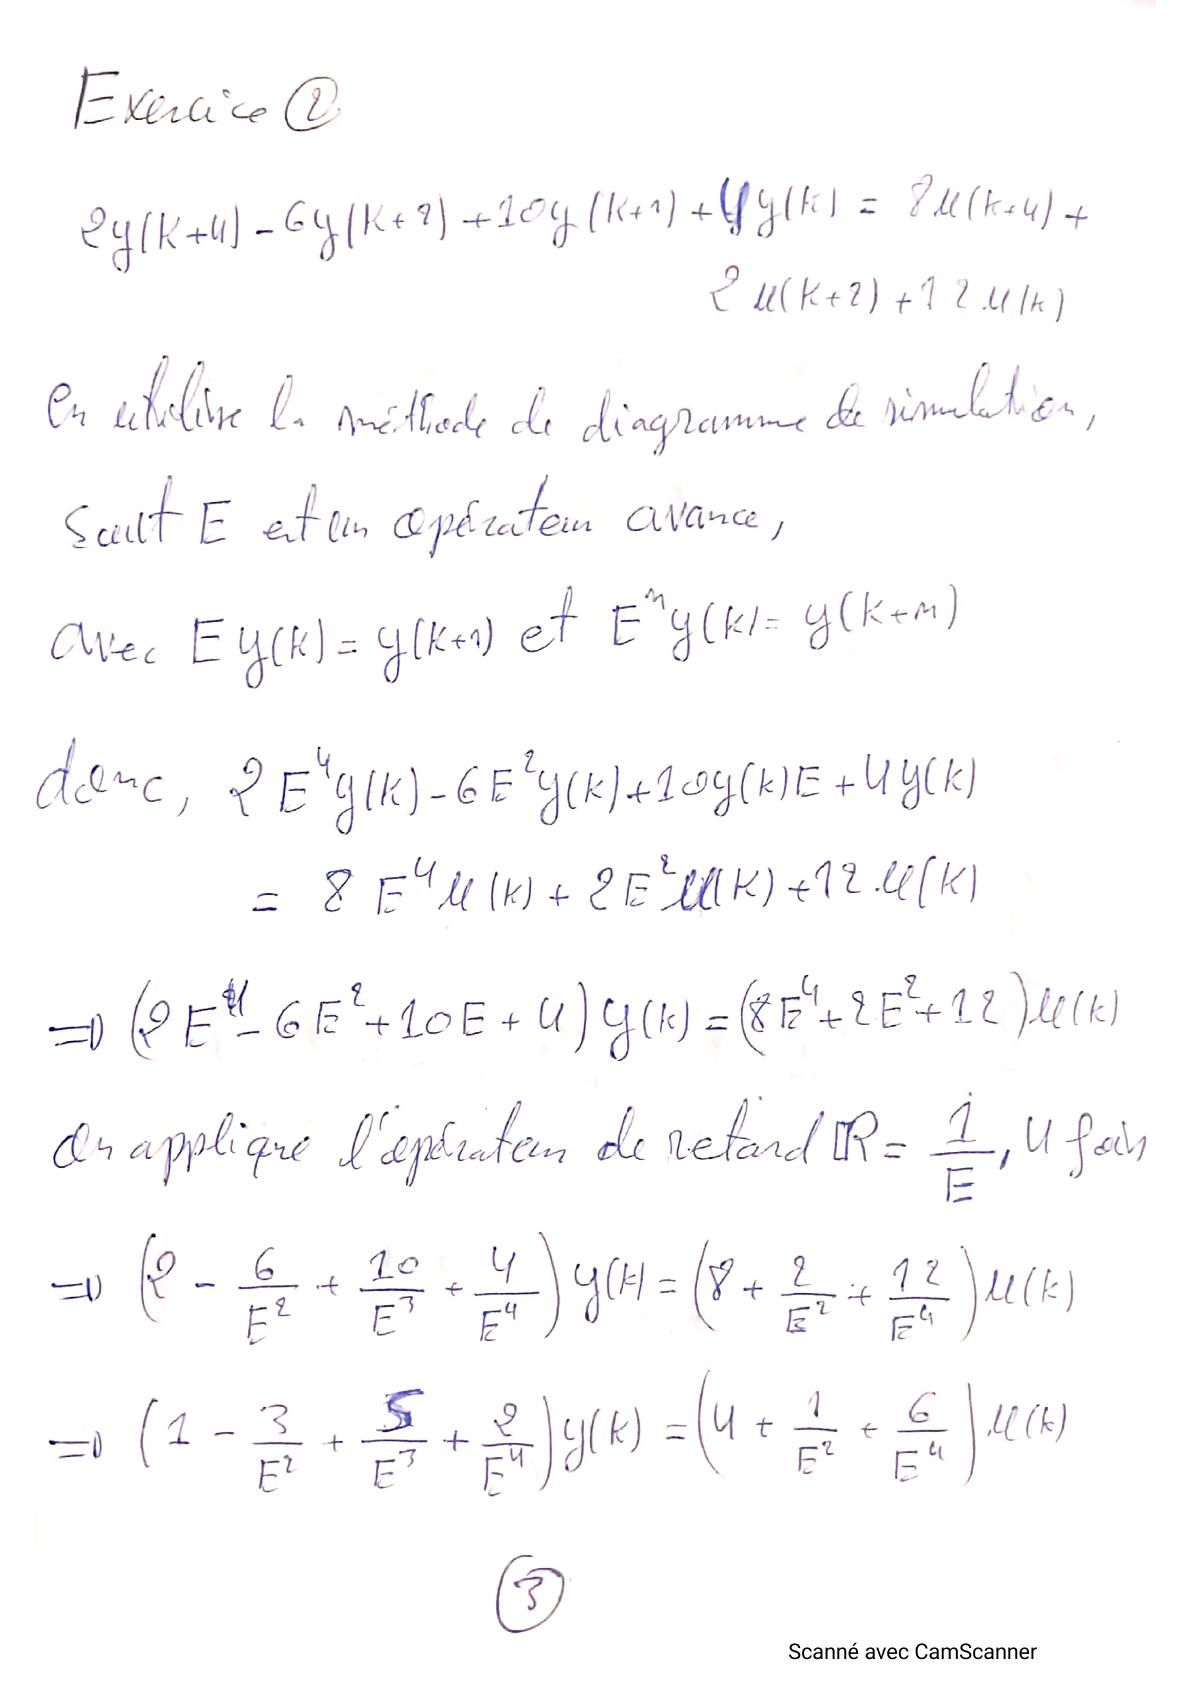 Exercice ②
2y(k+4) - 6y(k+2) + 10y(k+1) + 4y(k) = 8u(k+4) +
2u(k+2) + 12u(k)
on utilise la méthode de diagramme de simulation,
Soit E est un opérateur avance,
avec E y(k) = y(k+1) et Eⁿy(k) = y(k+n)
donc, 2E⁴y(k) - 6E²y(k) + 10y(k)E + 4y(k)
= 8E⁴u(k) + 2E²u(k) + 12u(k)
⇒ (2E⁴ - 6E² + 10E + 4) y(k) = (8E⁴ + 2E² + 12) u(k)
On applique l'opérateur de retard R = 1/E, 4 fois
⇒ (2 - 6/E² + 10/E³ + 4/E⁴) y(k) = (8 + 2/E² + 12/E⁴) u(k)
⇒ (1 - 3/E² + 5/E³ + 2/E⁴) y(k) = (4 + 1/E² + 6/E⁴) u(k)
③
Scanné avec CamScanner